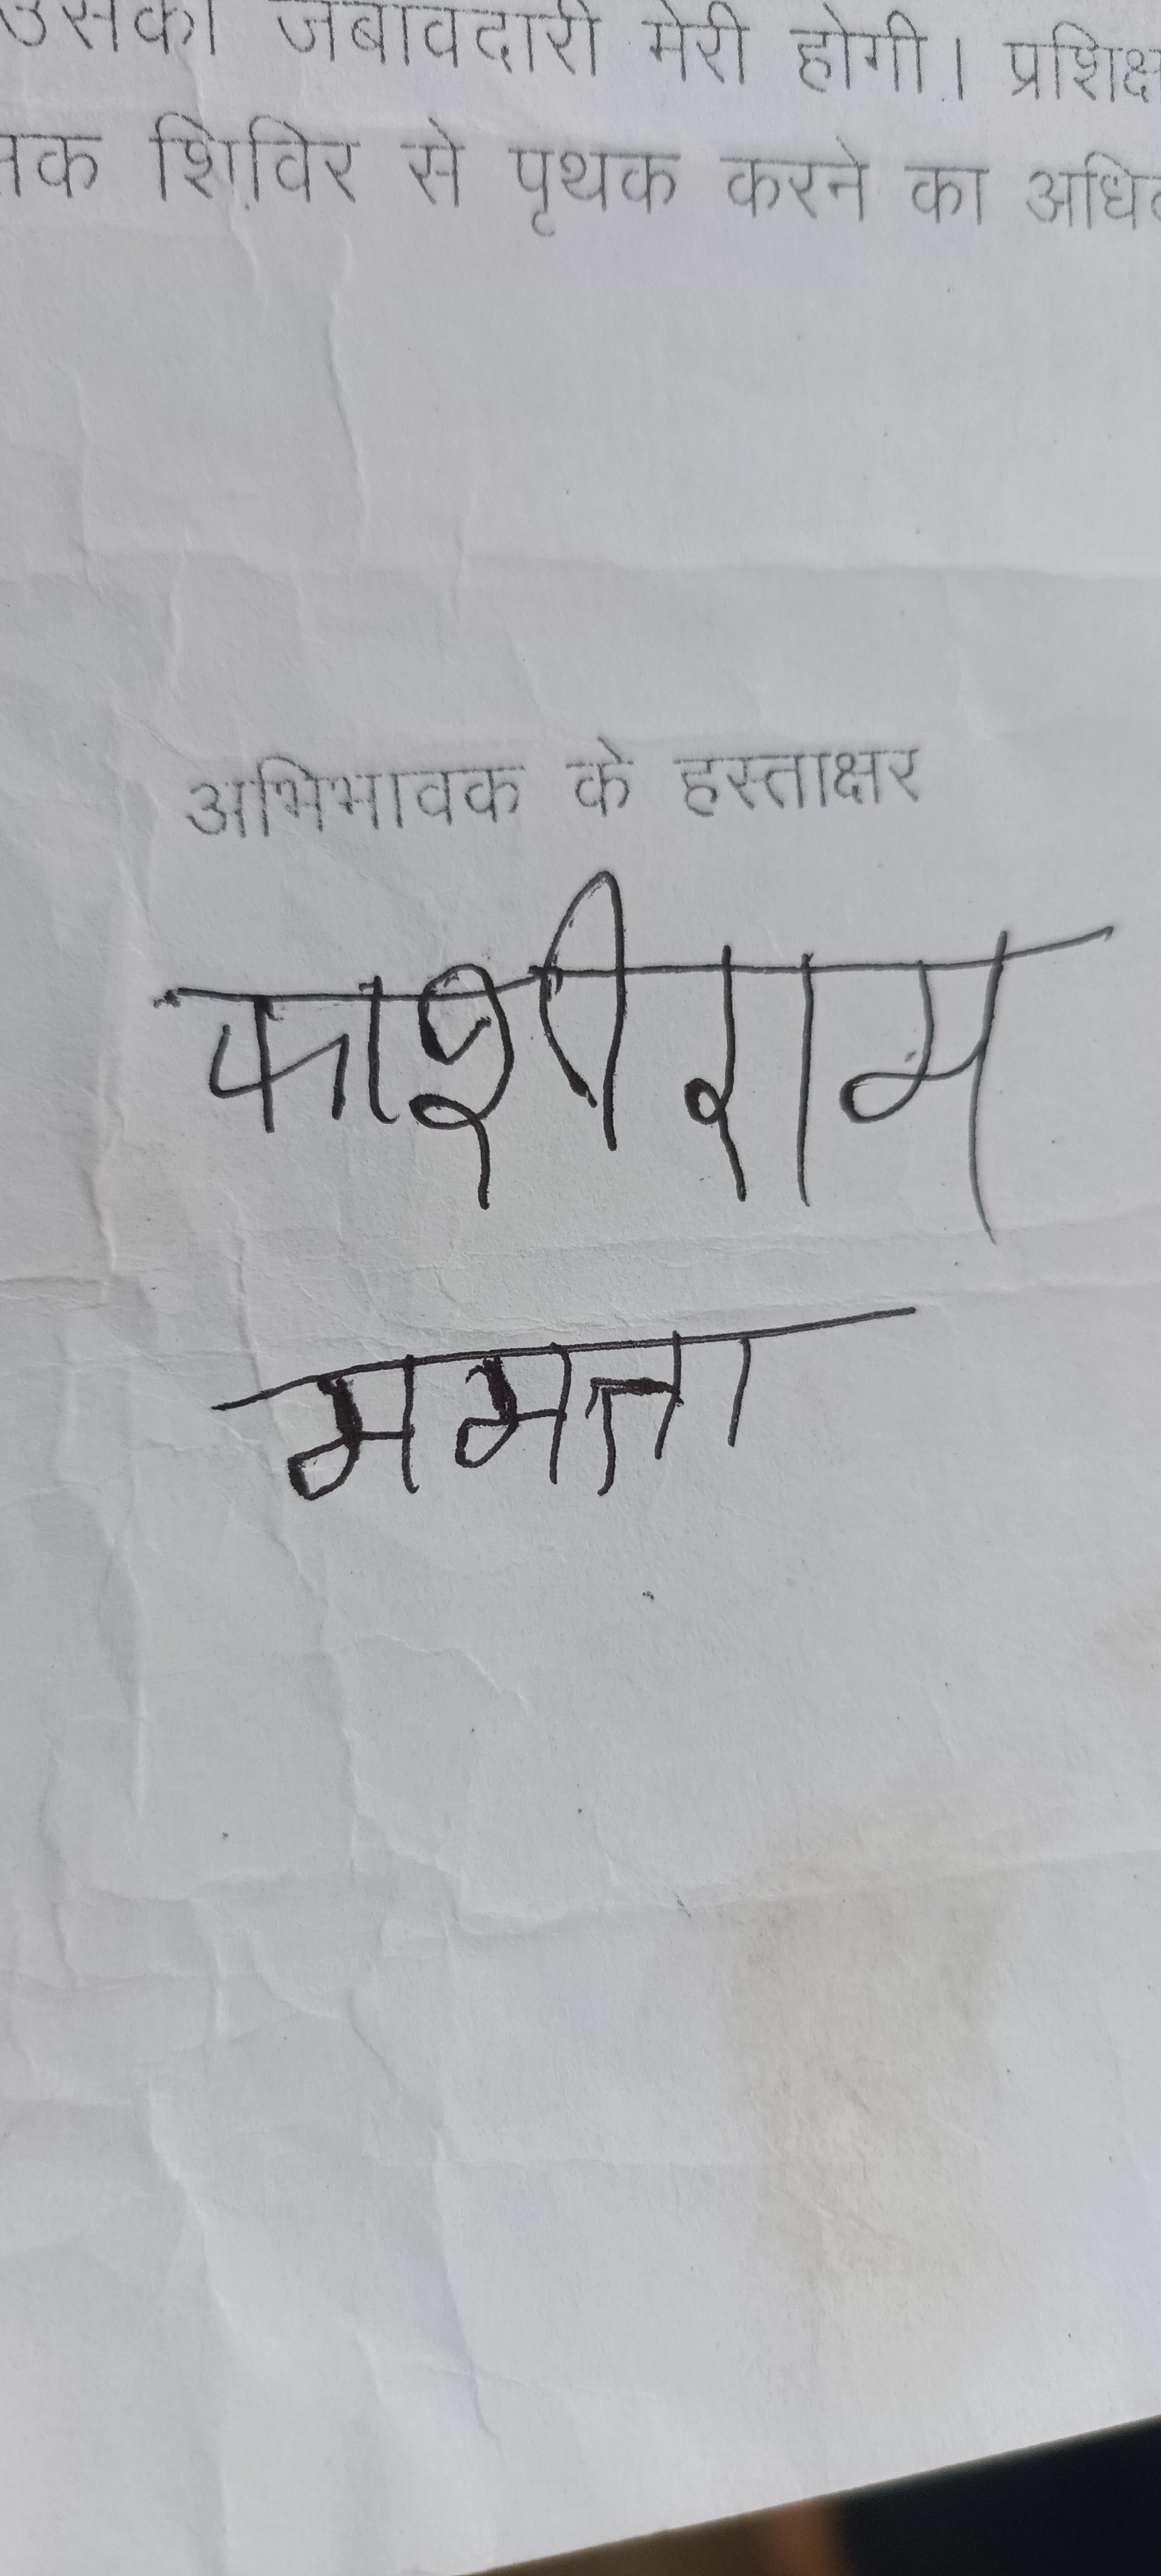 उसकी जबावदारी मेरी होगी। प्रशिक्ष
शिविर से पृथक करने का
अभिभावक के हस्ताक्षर
काशीराम
ममता